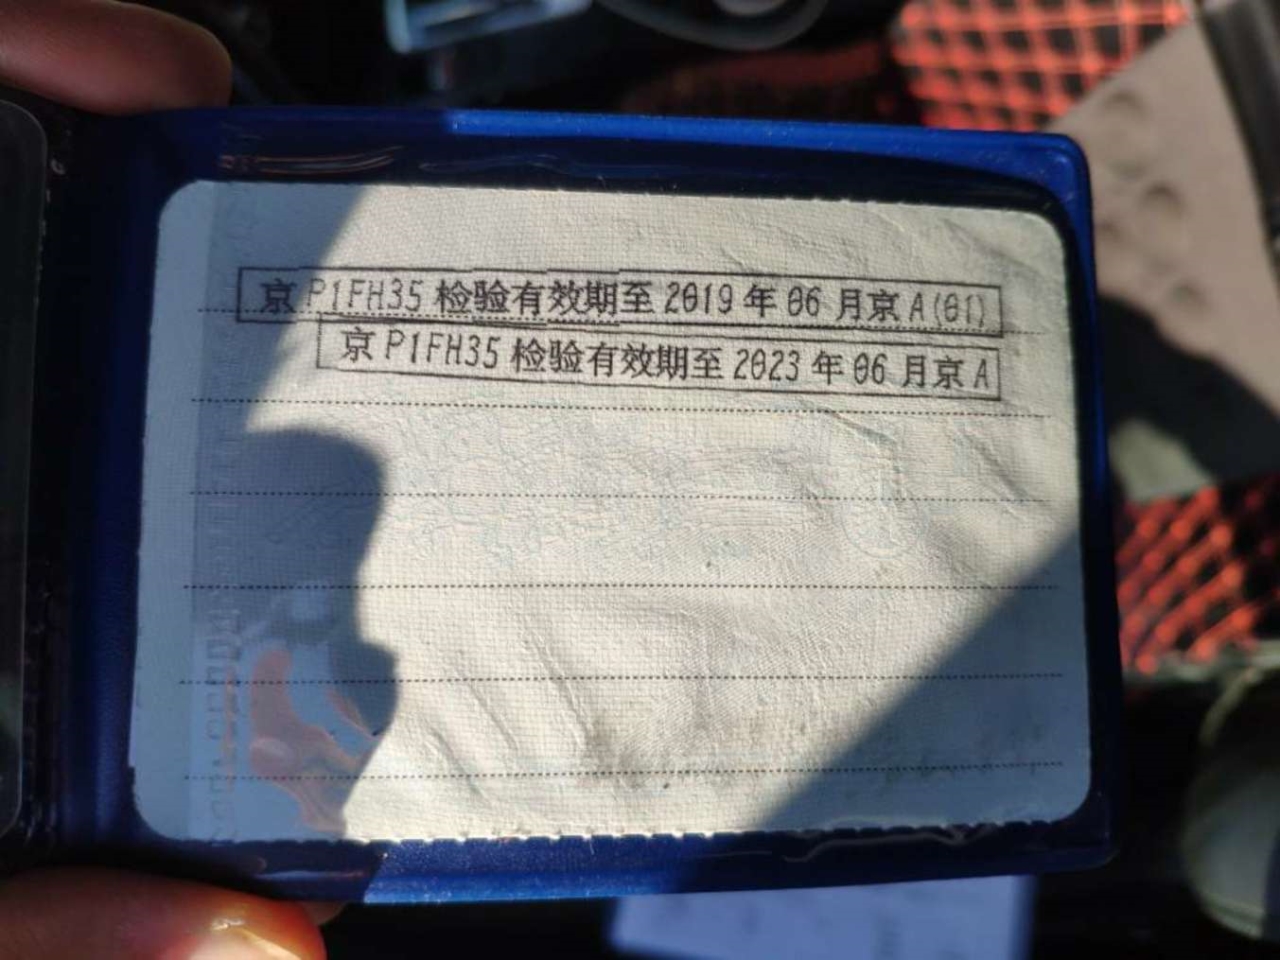 京P1FH35检验有效期至2019年06月京A(01)
京P1FH35检验有效期至2023年06月京A